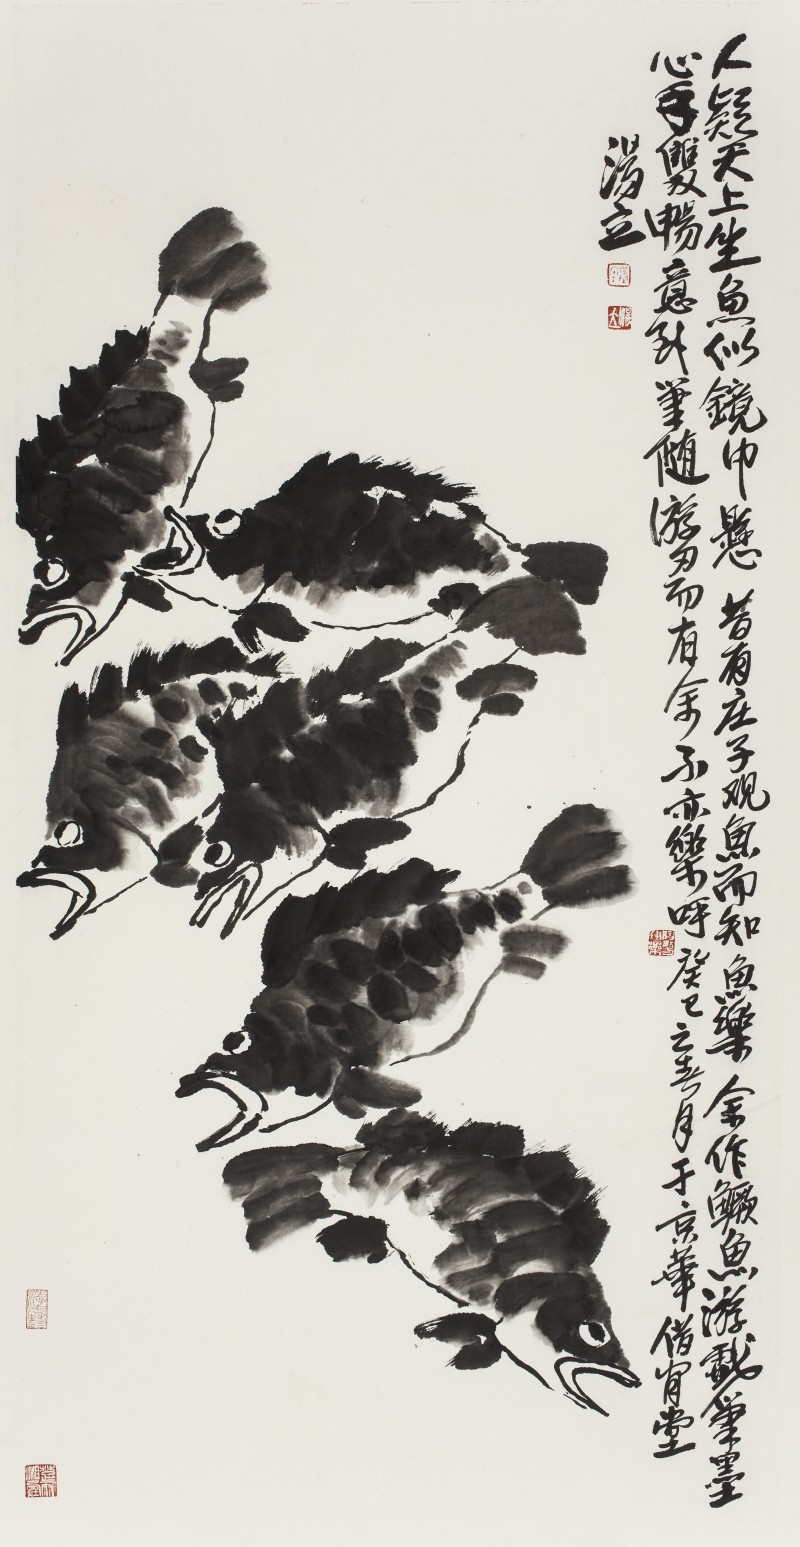 人疑天上坐鱼似镜中悬 昔有庄子观鱼而知鱼樂 余作鳜鱼游戲筆墨
心手雙暢意到筆随游刃而有余不亦樂呼 癸巳之春月于京華借宵堂
湯立